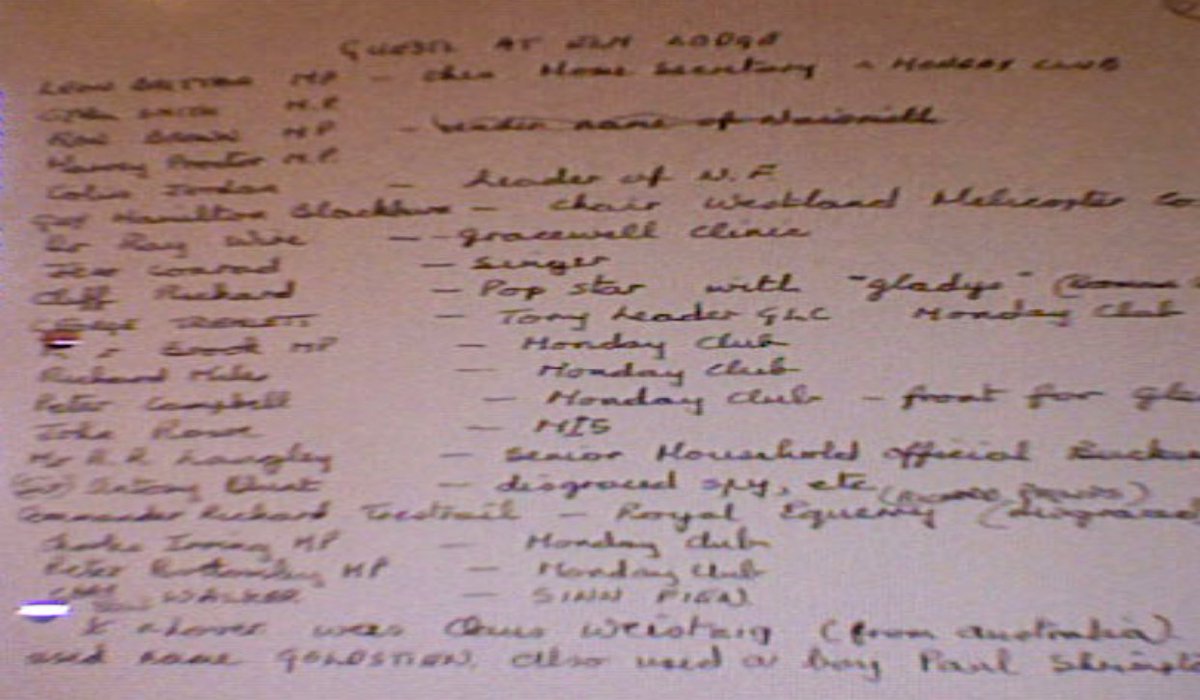 GUESTS AT ELM LODGE
LEON BRITTAN MP - then Home Secretary - MONDAY CLUB
CYRIL SMITH M.P
RON BROWN MP - under name of
Harvey Proctor M.P.
Colin Jordan - Leader of N.F
Guy Hamilton Blackburn - Chair Westland Helicopter Co
Dr Ray Wire - Gracewell Clinic
Jess Conrad - Singer
Cliff Richard - Pop star with "gladys"
GEORGE - Tory Leader GLC Monday Club
Brook MP - Monday Club
Richard Miles - Monday Club
Peter Campbell - Monday Club - front for
John Rowe - MI5
Mr R.R Langley - Senior Household official
(Sir) Antony Blunt - disgraced spy, etc
Commander Richard Trestrail - Royal Equerry
Charles Irving MP - Monday Club
Peter Bottomley MP - Monday Club
WALKER - SINN FIEN
was (from Australia)
used name GOLDSTIEN, also used a boy Paul